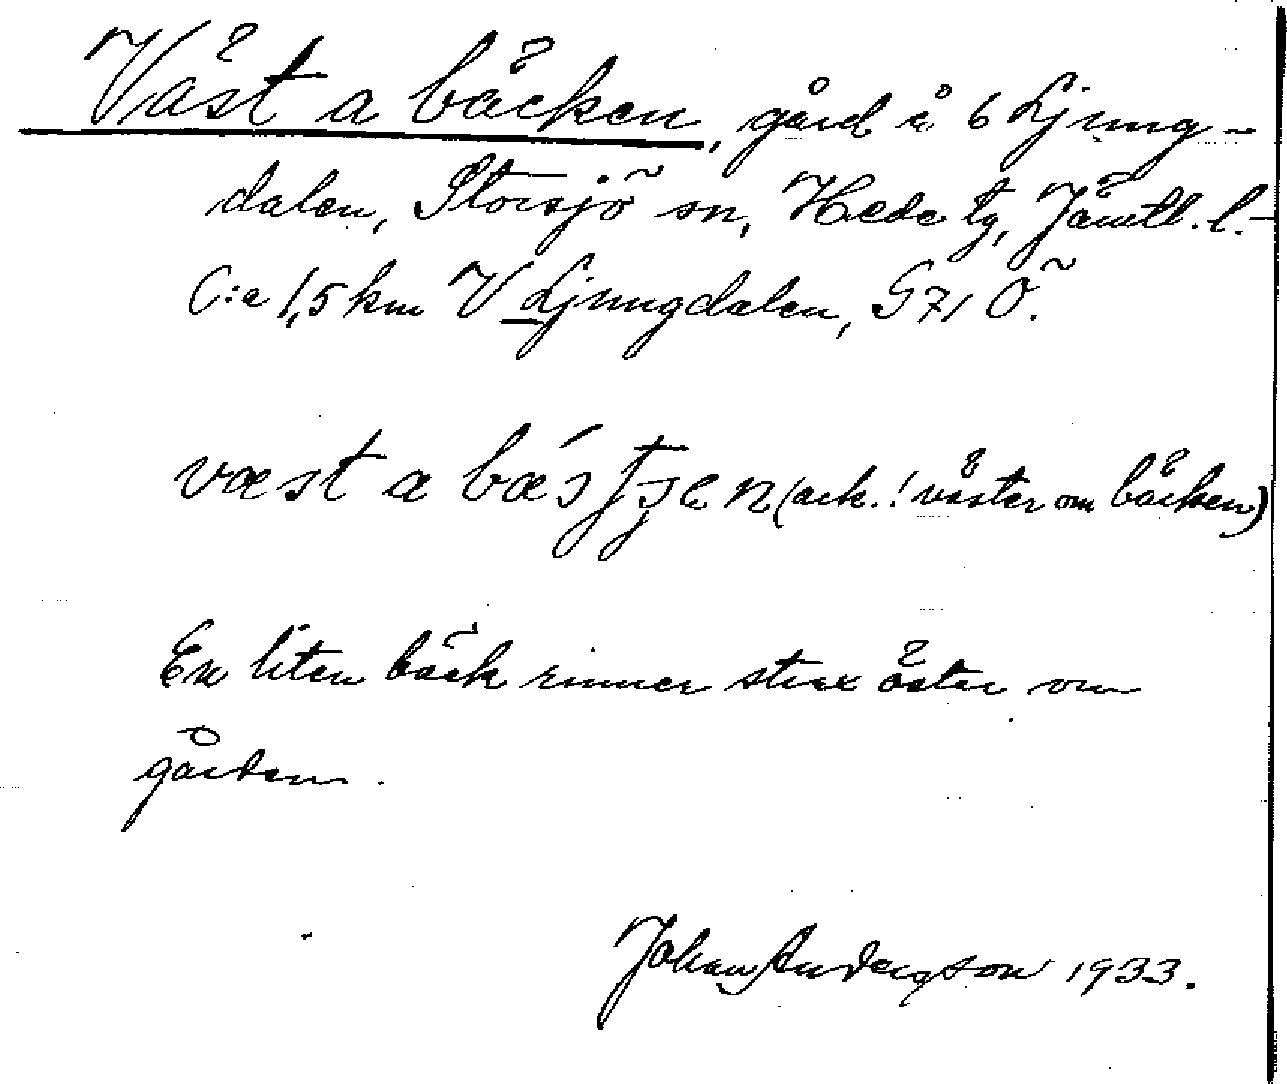 Väst a bäcken, gård å 6 Ljung-
dalen, Storsjö sn, Hede tg, Jämtl. l.
C:a 1,5 km V Ljungdalen, G 71 Ö.
väst a (ack.! väster om bäcken)
En liten bäck rinner strax öster om
gården.
Johan Anderson 1933.